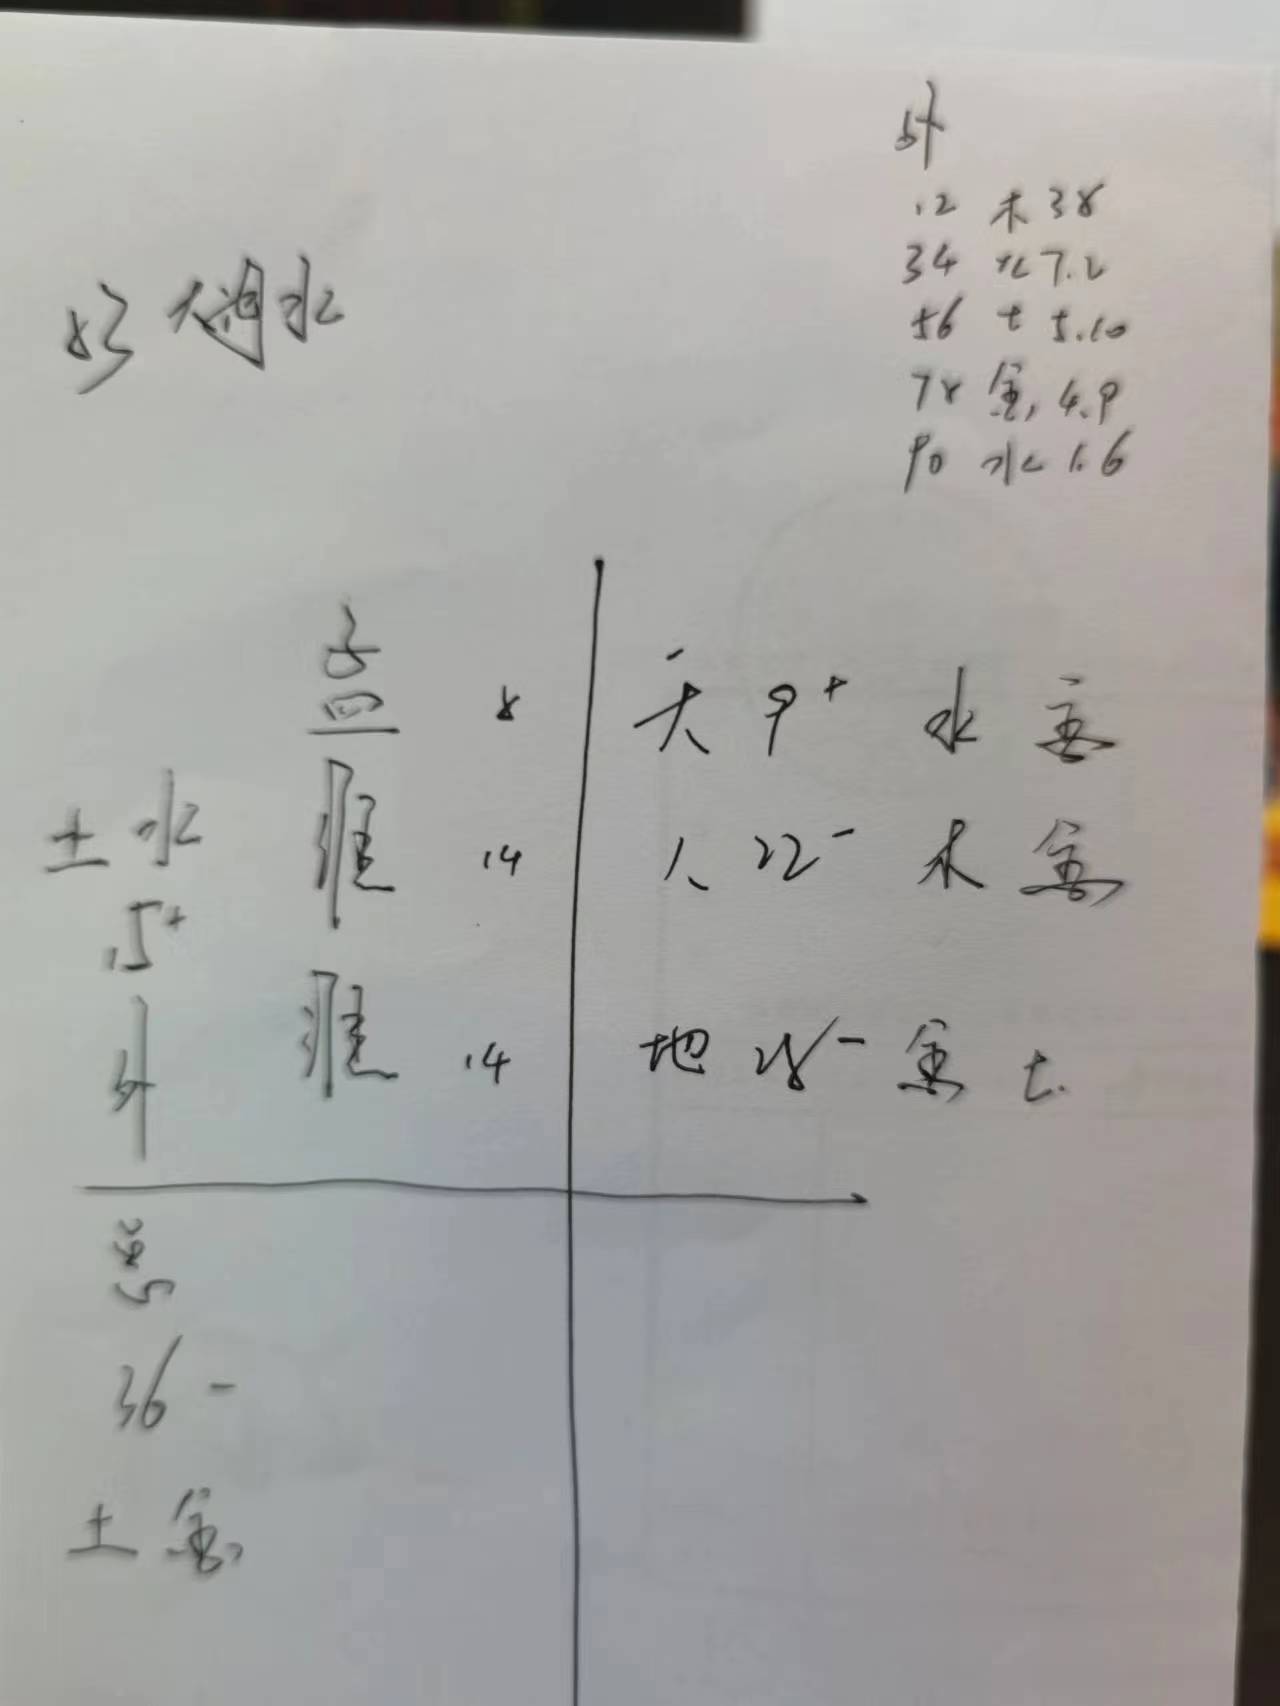 外
12 木 38
34 火 7.2
56 土 5.10
78 金, 4.9
90 水 1.6
好 水
孟 8 天 9+ 水 金
土 水
淮 14 人 22- 木 金
15+
外
淮 14 地 28- 金 土
总
36 -
土 金